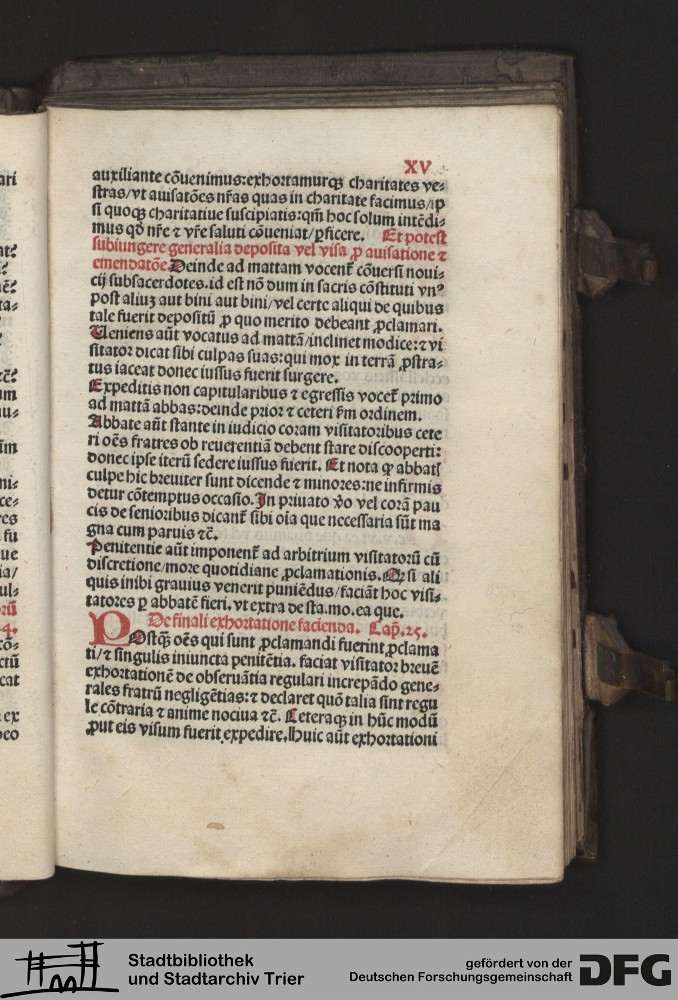 XV
auxiliante cõuenimus: exhortamurqꝫ charitates ve⸗
stras/vt auisatões nr̃as quas in charitate facimus/ip̃
si quoqꝫ charitatiue suscipiatis: qm̃ hoc solum intẽdi⸗
mus qd̃ nr̃e ⁊ vr̃e saluti cõueniat/ꝑficere. Et potest
subiungere generalia deposita vel visa ꝓ auisatione ⁊
emendatõe. Deinde ad mattam vocent᷑ cõuersi noui⸗
cij subsacerdotes. id est nõ dum in sacris cõstituti vnꝰ
post aliuꝫ aut bini aut bini/vel certe aliqui de quibus
tale fuerit depositũ ꝓ quo merito debeant ꝓclamari.
Ueniens aũt vocatus ad mattã/inclinet modice: ⁊ vi
sitator dicat sibi culpas suas: qui mox in terrã ꝓstra⸗
tus iaceat donec iussus fuerit surgere.
Expeditis non capitularibus ⁊ egressis vocet᷑ primo
ad mattã abbas: deinde prior ⁊ ceteri fm̃ ordinem.
Abbate aũt stante in iudicio coram visitatoribus cete
ri oẽs fratres ob reuerentiã debent stare discooperti:
donec ipse iterũ sedere iussus fuerit. Et nota ꝙ abbatis
culpe hic breuiter sunt dicende ⁊ minores: ne infirmis
detur cõtemptus occasio. In priuato v̾o vel corã pau
cis de senioribus dicant᷑ sibi oĩa que necessaria sũt ma
gna cum paruis ⁊c̃.
Penitentie aũt imponent᷑ ad arbitrium visitatorũ cũ
discretione/more quotidiane ꝓclamationis. Ꝙ si ali
quis inibi grauius venerit puniẽdus/faciãt hoc visi⸗
tatores ꝑ abbatẽ fieri. vt extra de sta. mo. ea que.
De finali exhortatione facienda. Cap̃. 25.
POstqꝫ oẽs qui sunt ꝓclamandi fuerint ꝓclama
ti/⁊ singulis iniuncta penitẽtia. faciat visitator breuẽ
exhortationẽ de obseruãtia regulari increpãdo gene⸗
rales fratrũ negligẽtias: ⁊ declaret quõ talia sint regu
le cõtraria ⁊ anime nociua ⁊c̃. Ceteraqꝫ in hũc modũ
ꝓut eis visum fuerit expedire. Huic aũt exhortationi
Stadtbibliothek
und Stadtarchiv Trier
gefördert von der
Deutschen Forschungsgemeinschaft
DFG